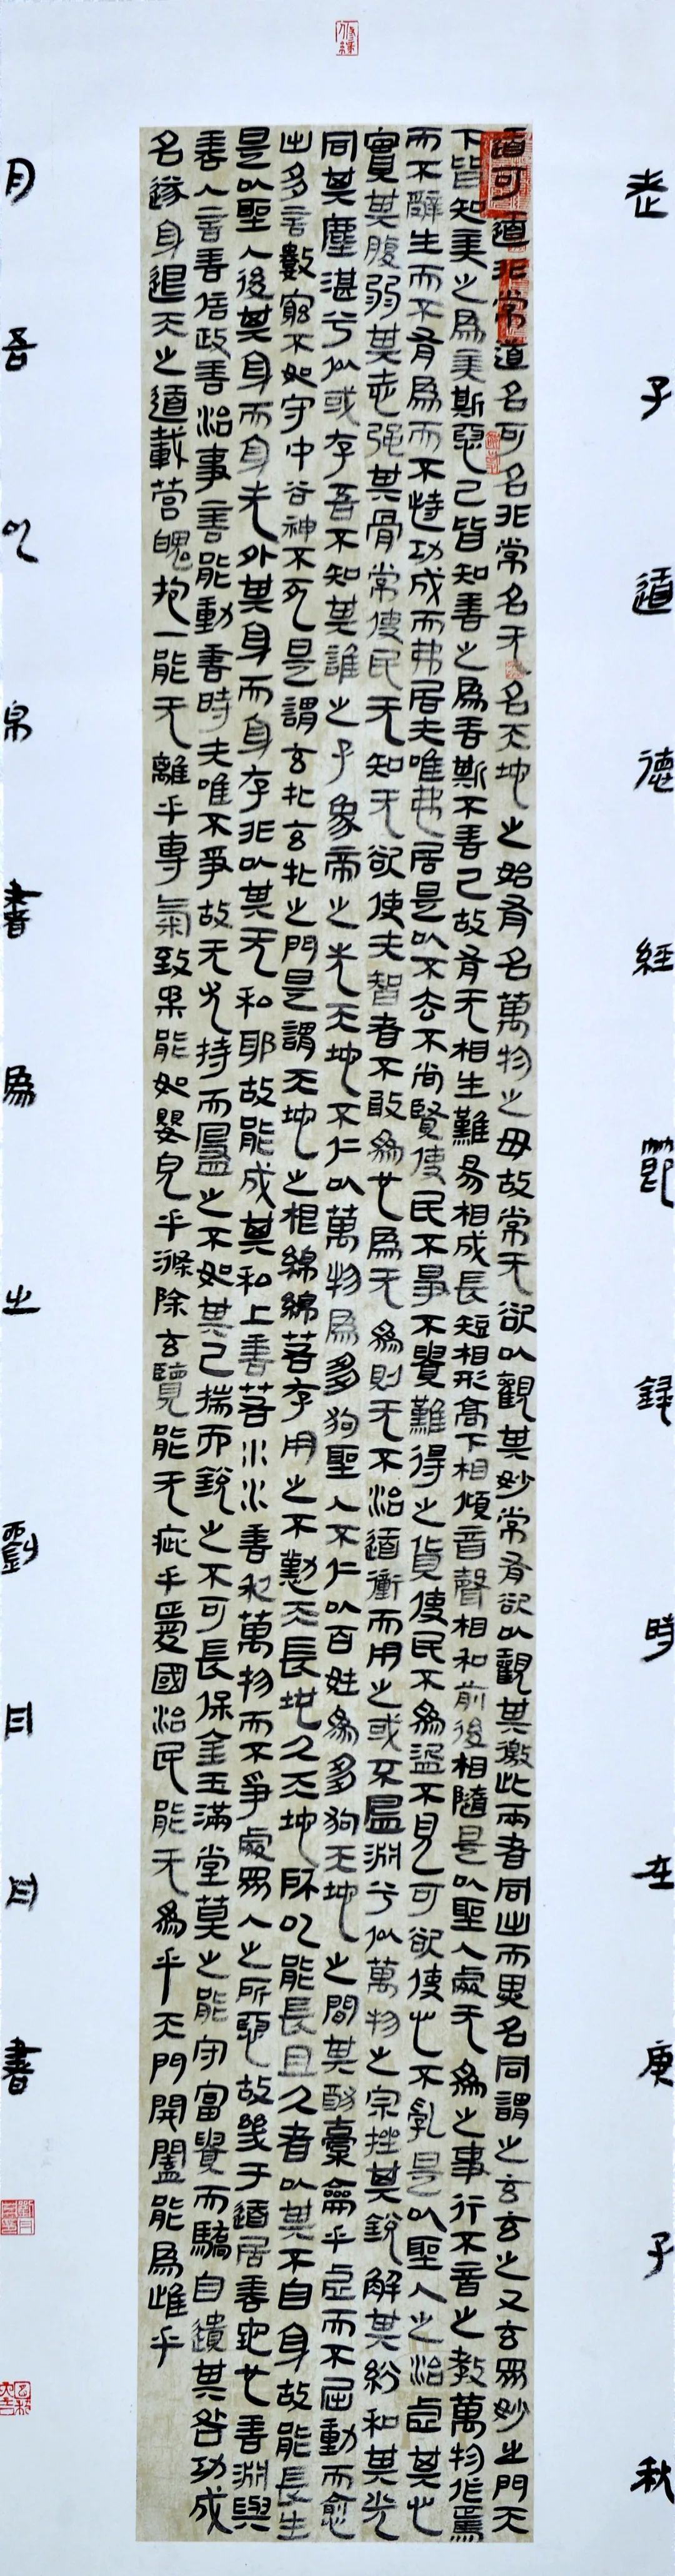 老子道德經節錄時在庚子秋
道可道非常道名可名非常名无名天地之始有名萬物之母故常无欲以觀其妙常有欲以觀其徼此兩者同出而異名同謂之玄玄之又玄眾妙之門天
下皆知美之為美斯惡已皆知善之為善斯不善已故有无相生難易相成長短相形高下相傾音聲相和前後相隨是以聖人處无為之事行不言之教萬物作焉
而不辭生而不有為而不恃功成而弗居夫唯弗居是以不去不尚賢使民不爭不貴難得之貨使民不為盜不見可欲使心不亂是以聖人之治虛其心
實其腹弱其志強其骨常使民无知无欲使夫智者不敢為也為无為則无不治道衝而用之或不盈淵兮似萬物之宗挫其銳解其紛和其光
同其塵湛兮似或存吾不知其誰之子象帝之先天地不仁以萬物為芻狗聖人不仁以百姓為芻狗天地之間其猶橐籥乎虛而不屈動而愈
出多言數窮不如守中谷神不死是謂玄牝玄牝之門是謂天地之根綿綿若存用之不勤天長地久天地所以能長且久者以其不自身故能長生
是以聖人後其身而身先外其身而身存非以其无私耶故能成其私上善若水水善利萬物而不爭處眾人之所惡故幾于道居善地心善淵與
善人言善信政善治事善能動善時夫唯不爭故无尤持而盈之不如其已揣而銳之不可長保金玉滿堂莫之能守富貴而驕自遺其咎功成
名遂身退天之道載營魄抱一能无離乎專氣致柔能如嬰兒乎滌除玄覽能无疵乎愛國治民能无為乎天門開闔能為雌乎
月吾以帛書為之劉月月書